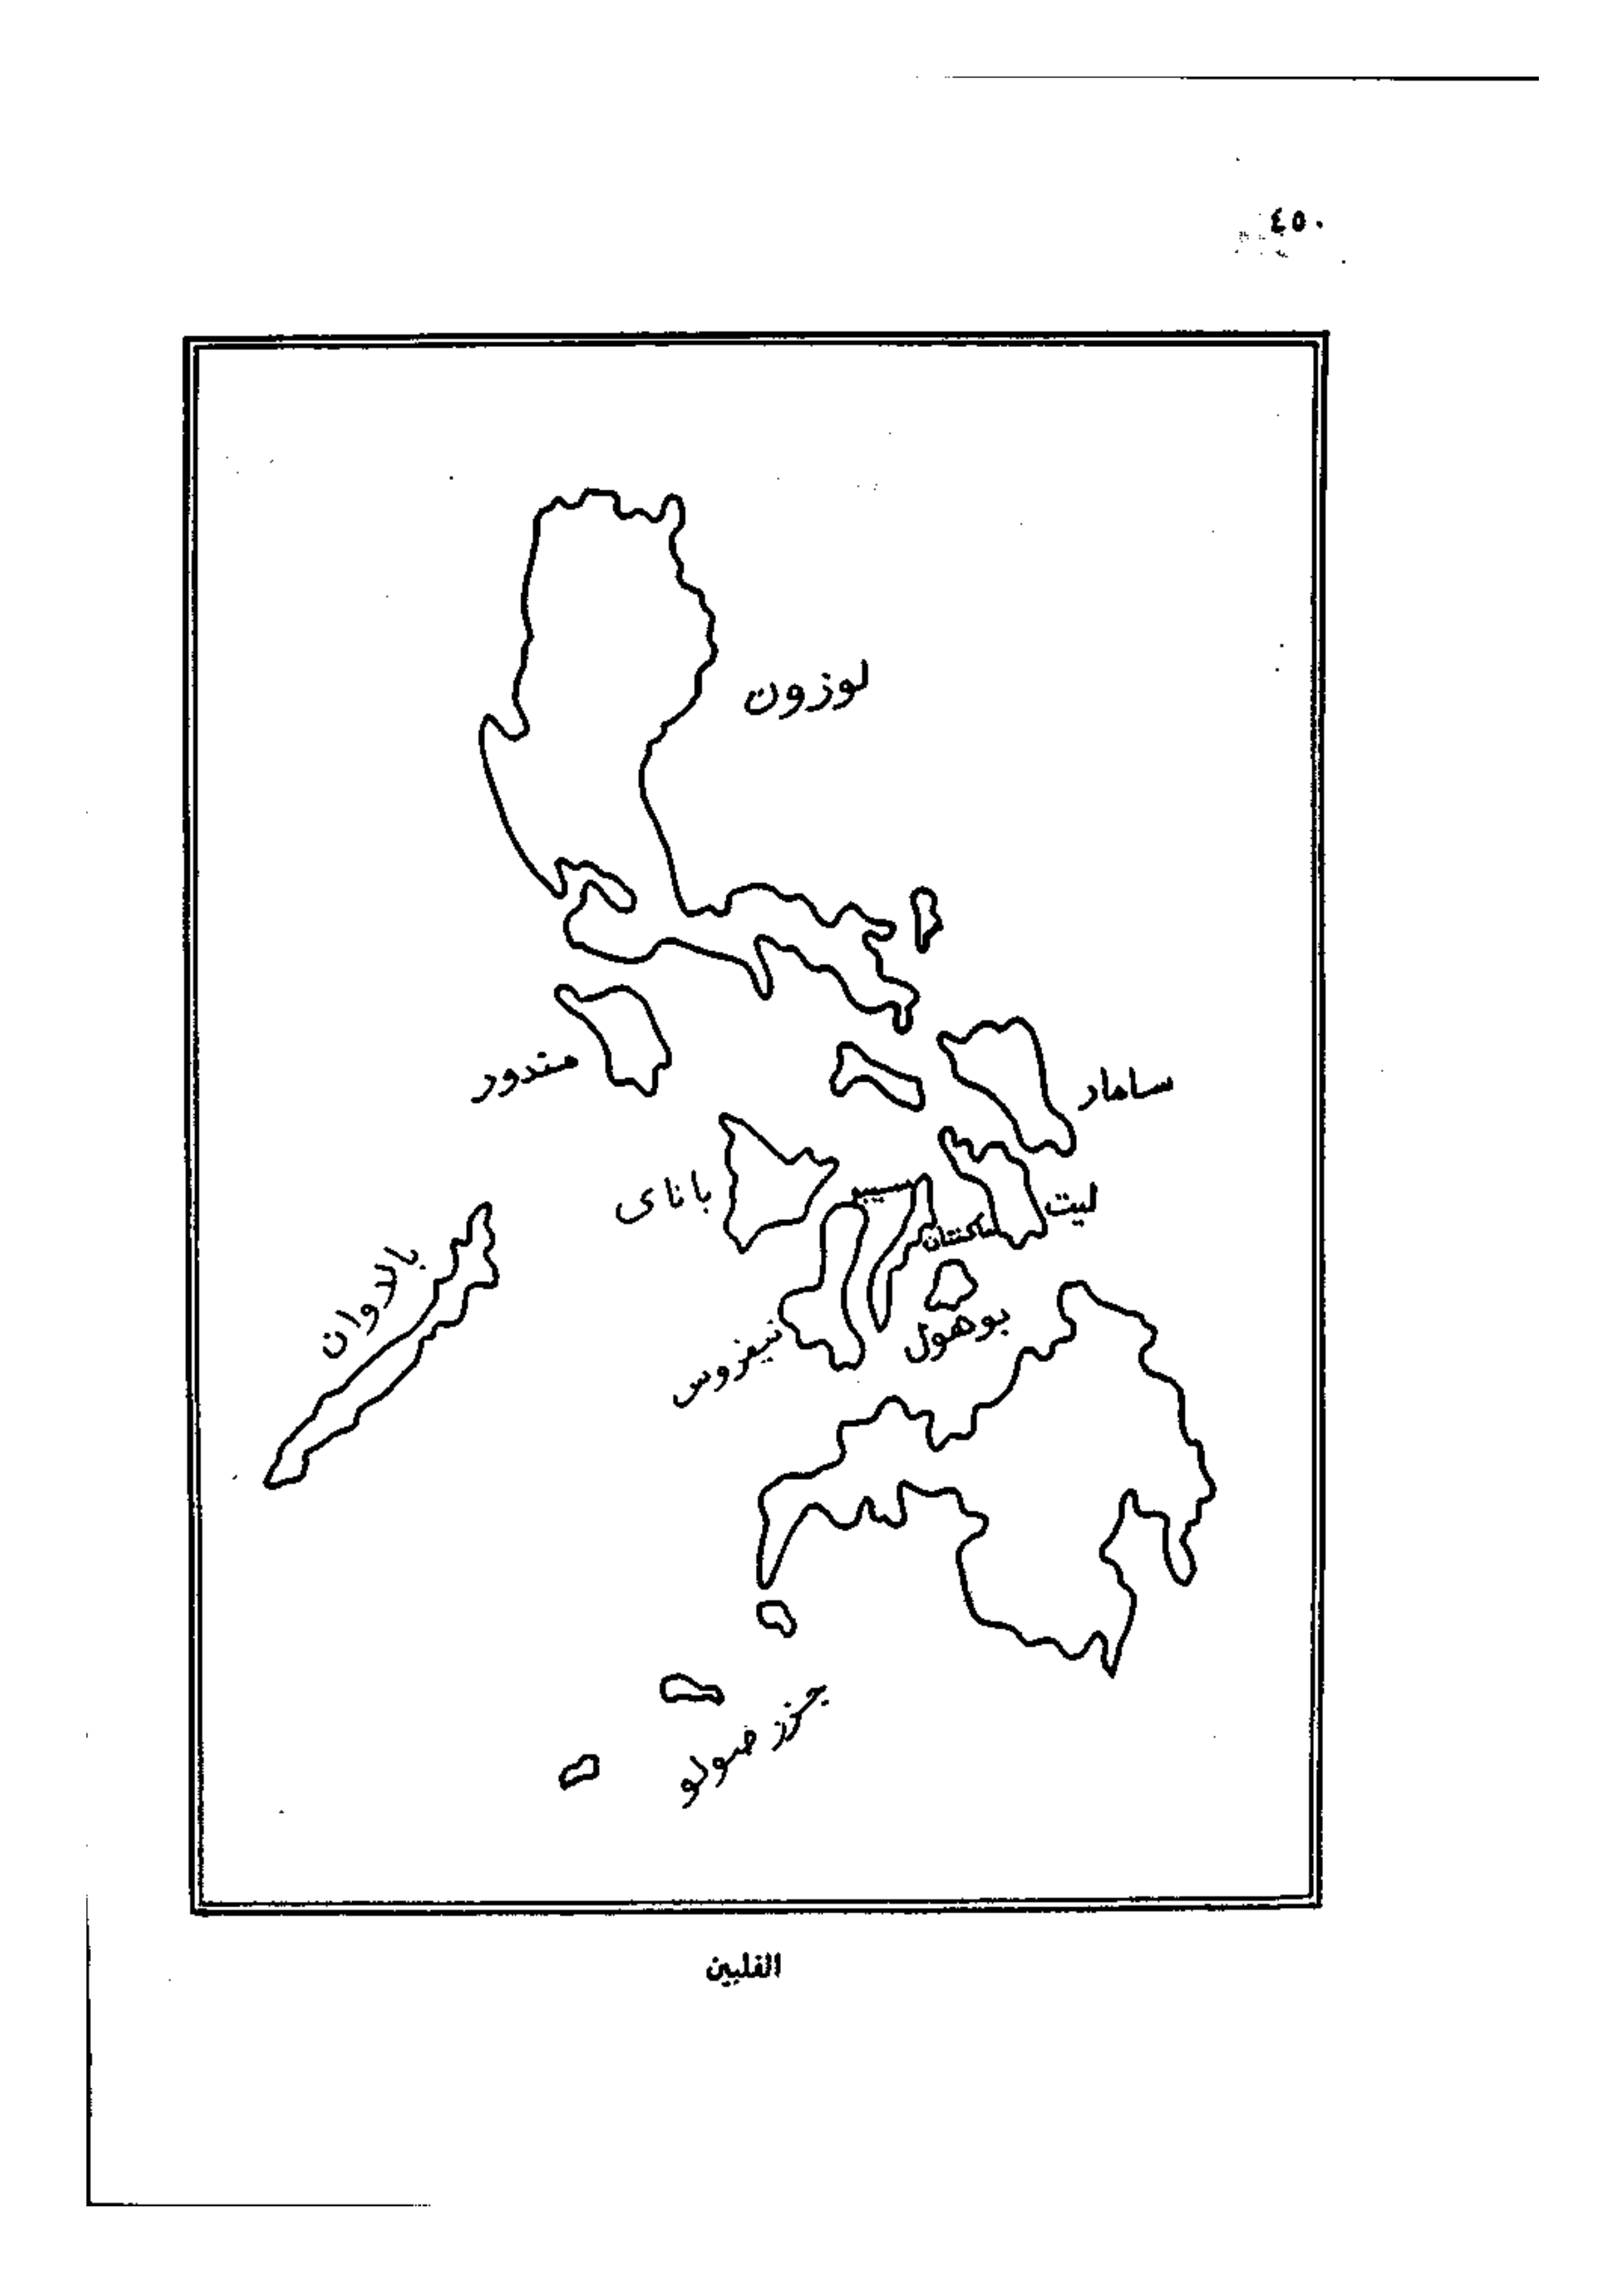 ٤٥٠
لوزون
مندور
سامار
باناى
ليت
ماكتان
بالاوان
بوهول
نيغروس
جزر صولو
الفلبين